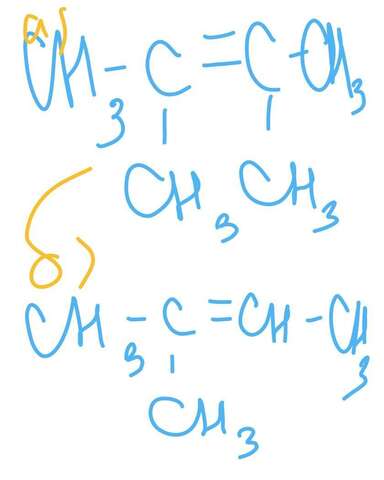 а) CH₃ - C = C - CH₃
CH₃ CH₃
б)
CH₃ - C = CH - CH₃
CH₃